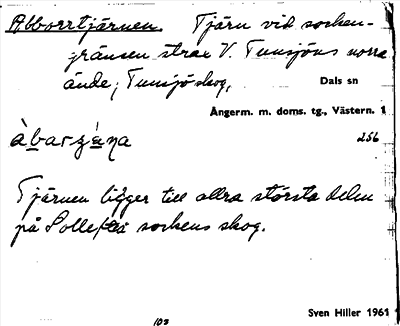 Abborrtjärnen. Tjärn vid socken-
gränsen strax V. Tunsjöns norra
ände; Tunsjö skog, Dals sn
Ångerm. m. doms. tg., Västern. 1
àbar-záṇa 256
Tjärnen ligger till allra största delen
på Sollefteå sockens skog.
Sven Hiller 1961
102